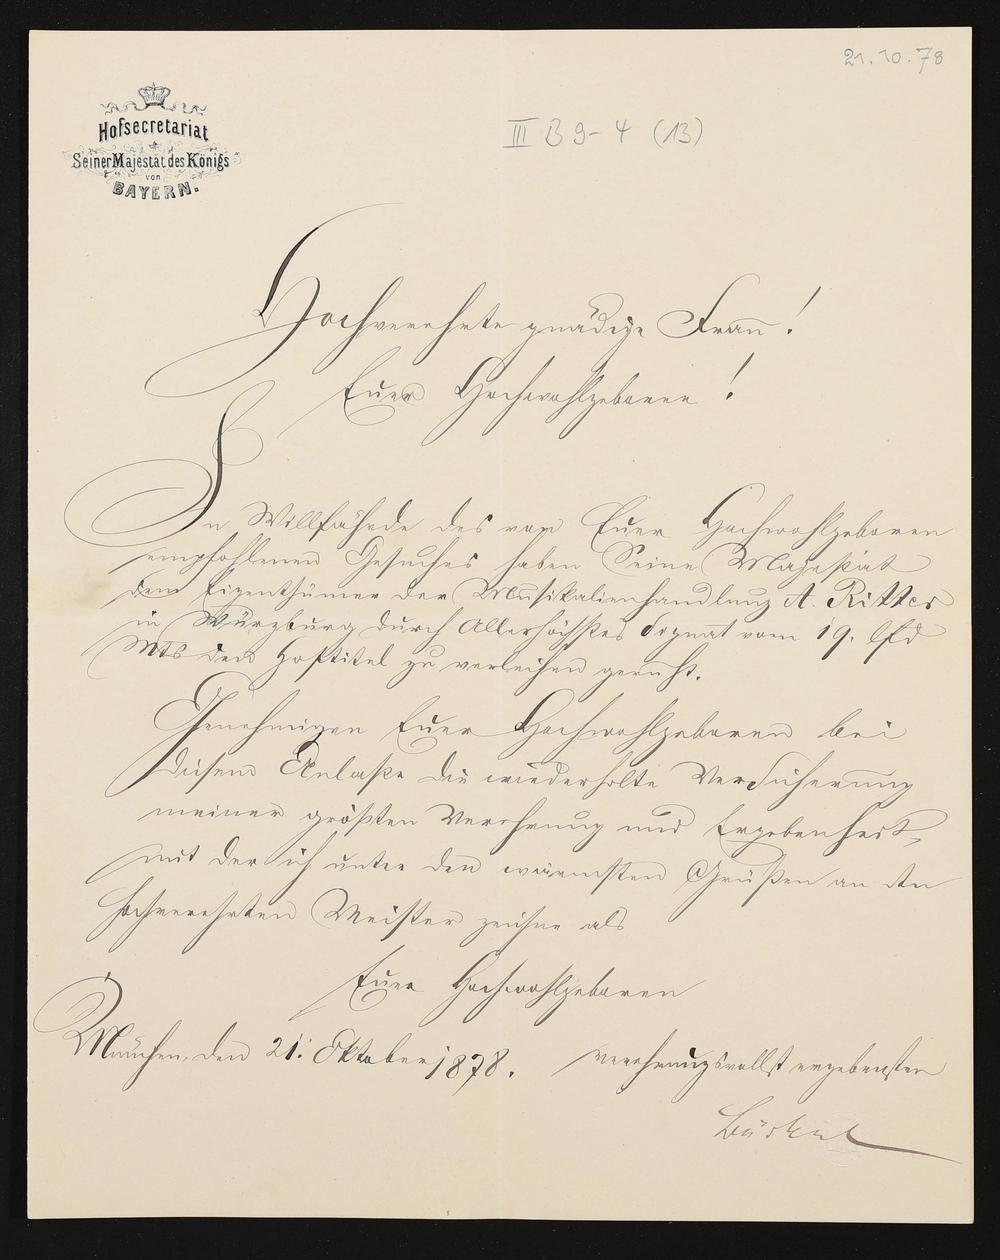 21.10.78
III B 9-4 (13)
Hofsecretariat
Seiner Majestät des Königs
von
BAYERN.
Hochverehrte gnädige Frau!
Euer Hochwohlgeboren!
In Willfahrde des von Euer Hochwohlgeboren
empfohlenen Gesuches haben Seine Majestät
dem Eigenthümer der Musikalienhandlung A. Ritter
in Würzburg durch Allerhöchstes Signat vom 19. lfd
Mts den Hoftitel zu verleihen geruht.
Genehmigen Euer Hochwohlgeboren bei
diesem Anlaße die wiederholte Versicherung
meiner größten Verehrung und Ergebenheit,
mit der ich unter den wärmsten Grüßen an den
hochverehrten Meister zeichne als
Euer Hochwohlgeboren
München, den 21. Oktober 1878.
verehrungsvollst ergebenster
Bürkel